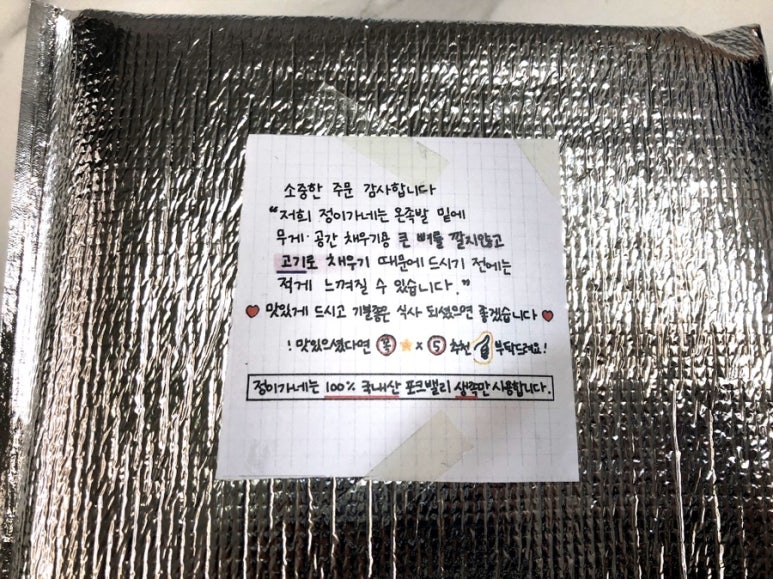 소중한 주문 감사합니다
"저희 정이가네는 온족발 밑에
무게·공간 채우기용 큰 뼈를 깔지않고
고기로 채우기 때문에 드시기 전에는
적게 느껴질 수 있습니다."
♥ 맛있게 드시고 기분좋은 식사 되셨으면 좋겠습니다 ♥
! 맛있으셨다면 꼭 ★ x 5 추천 부탁드려요!
정이가네는 100% 국내산 포크밸리 생족만 사용합니다.